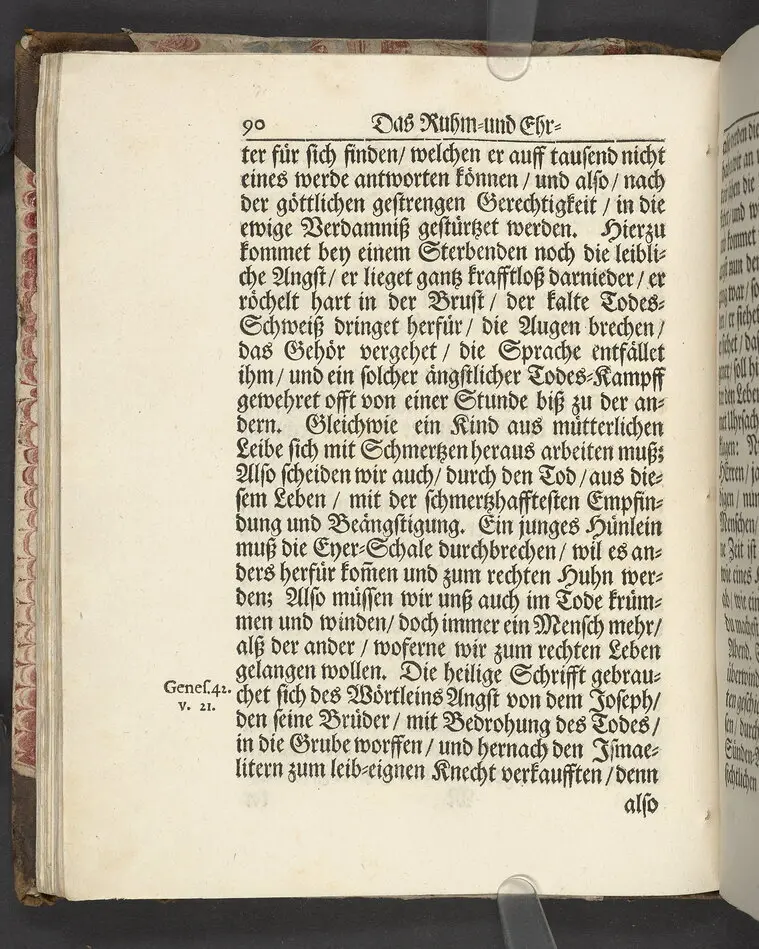 90 Das Ruhm-und Ehr-
ter für sich finden/ welchen er auff tausend nicht
eines werde antworten können / und also / nach
der göttlichen gestrengen Gerechtigkeit / in die
ewige Verdamniß gestürtzet werden. Hierzu
kommet bey einem Sterbenden noch die leibli-
che Angst / er lieget gantz krafftloß darnieder / er
röchelt hart in der Brust / der kalte Todes-
Schweiß dringet herfür / die Augen brechen /
das Gehör vergehet / die Sprache entfället
ihm / und ein solcher ängstlicher Todes-Kampff
gewehret offt von einer Stunde biß zu der an-
dern. Gleichwie ein Kind aus mütterlichen
Leibe sich mit Schmertzen heraus arbeiten muß;
Also scheiden wir auch / durch den Tod / aus die-
sem Leben / mit der schmertzhafftesten Empfin-
dung und Beängstigung. Ein junges Hünlein
muß die Eyer-Schale durchbrechen / wil es an-
ders herfür kom̃en und zum rechten Huhn wer-
den; Also müssen wir unß auch im Tode krüm-
men und winden / doch immer ein Mensch mehr /
alß der ander / woferne wir zum rechten Leben
gelangen wollen. Die heilige Schrifft gebrau-
Genes. 42.
v. 21.
chet sich des Wörtleins Angst von dem Joseph /
den seine Brüder / mit Bedrohung des Todes /
in die Grube worffen / und hernach den Ismae-
litern zum leib-eignen Knecht verkaufften / denn
also